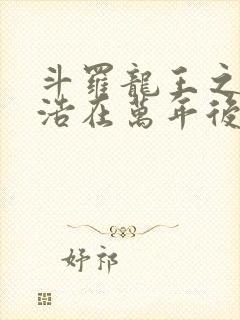 斗羅龍王之
浩在萬年後
妤祁